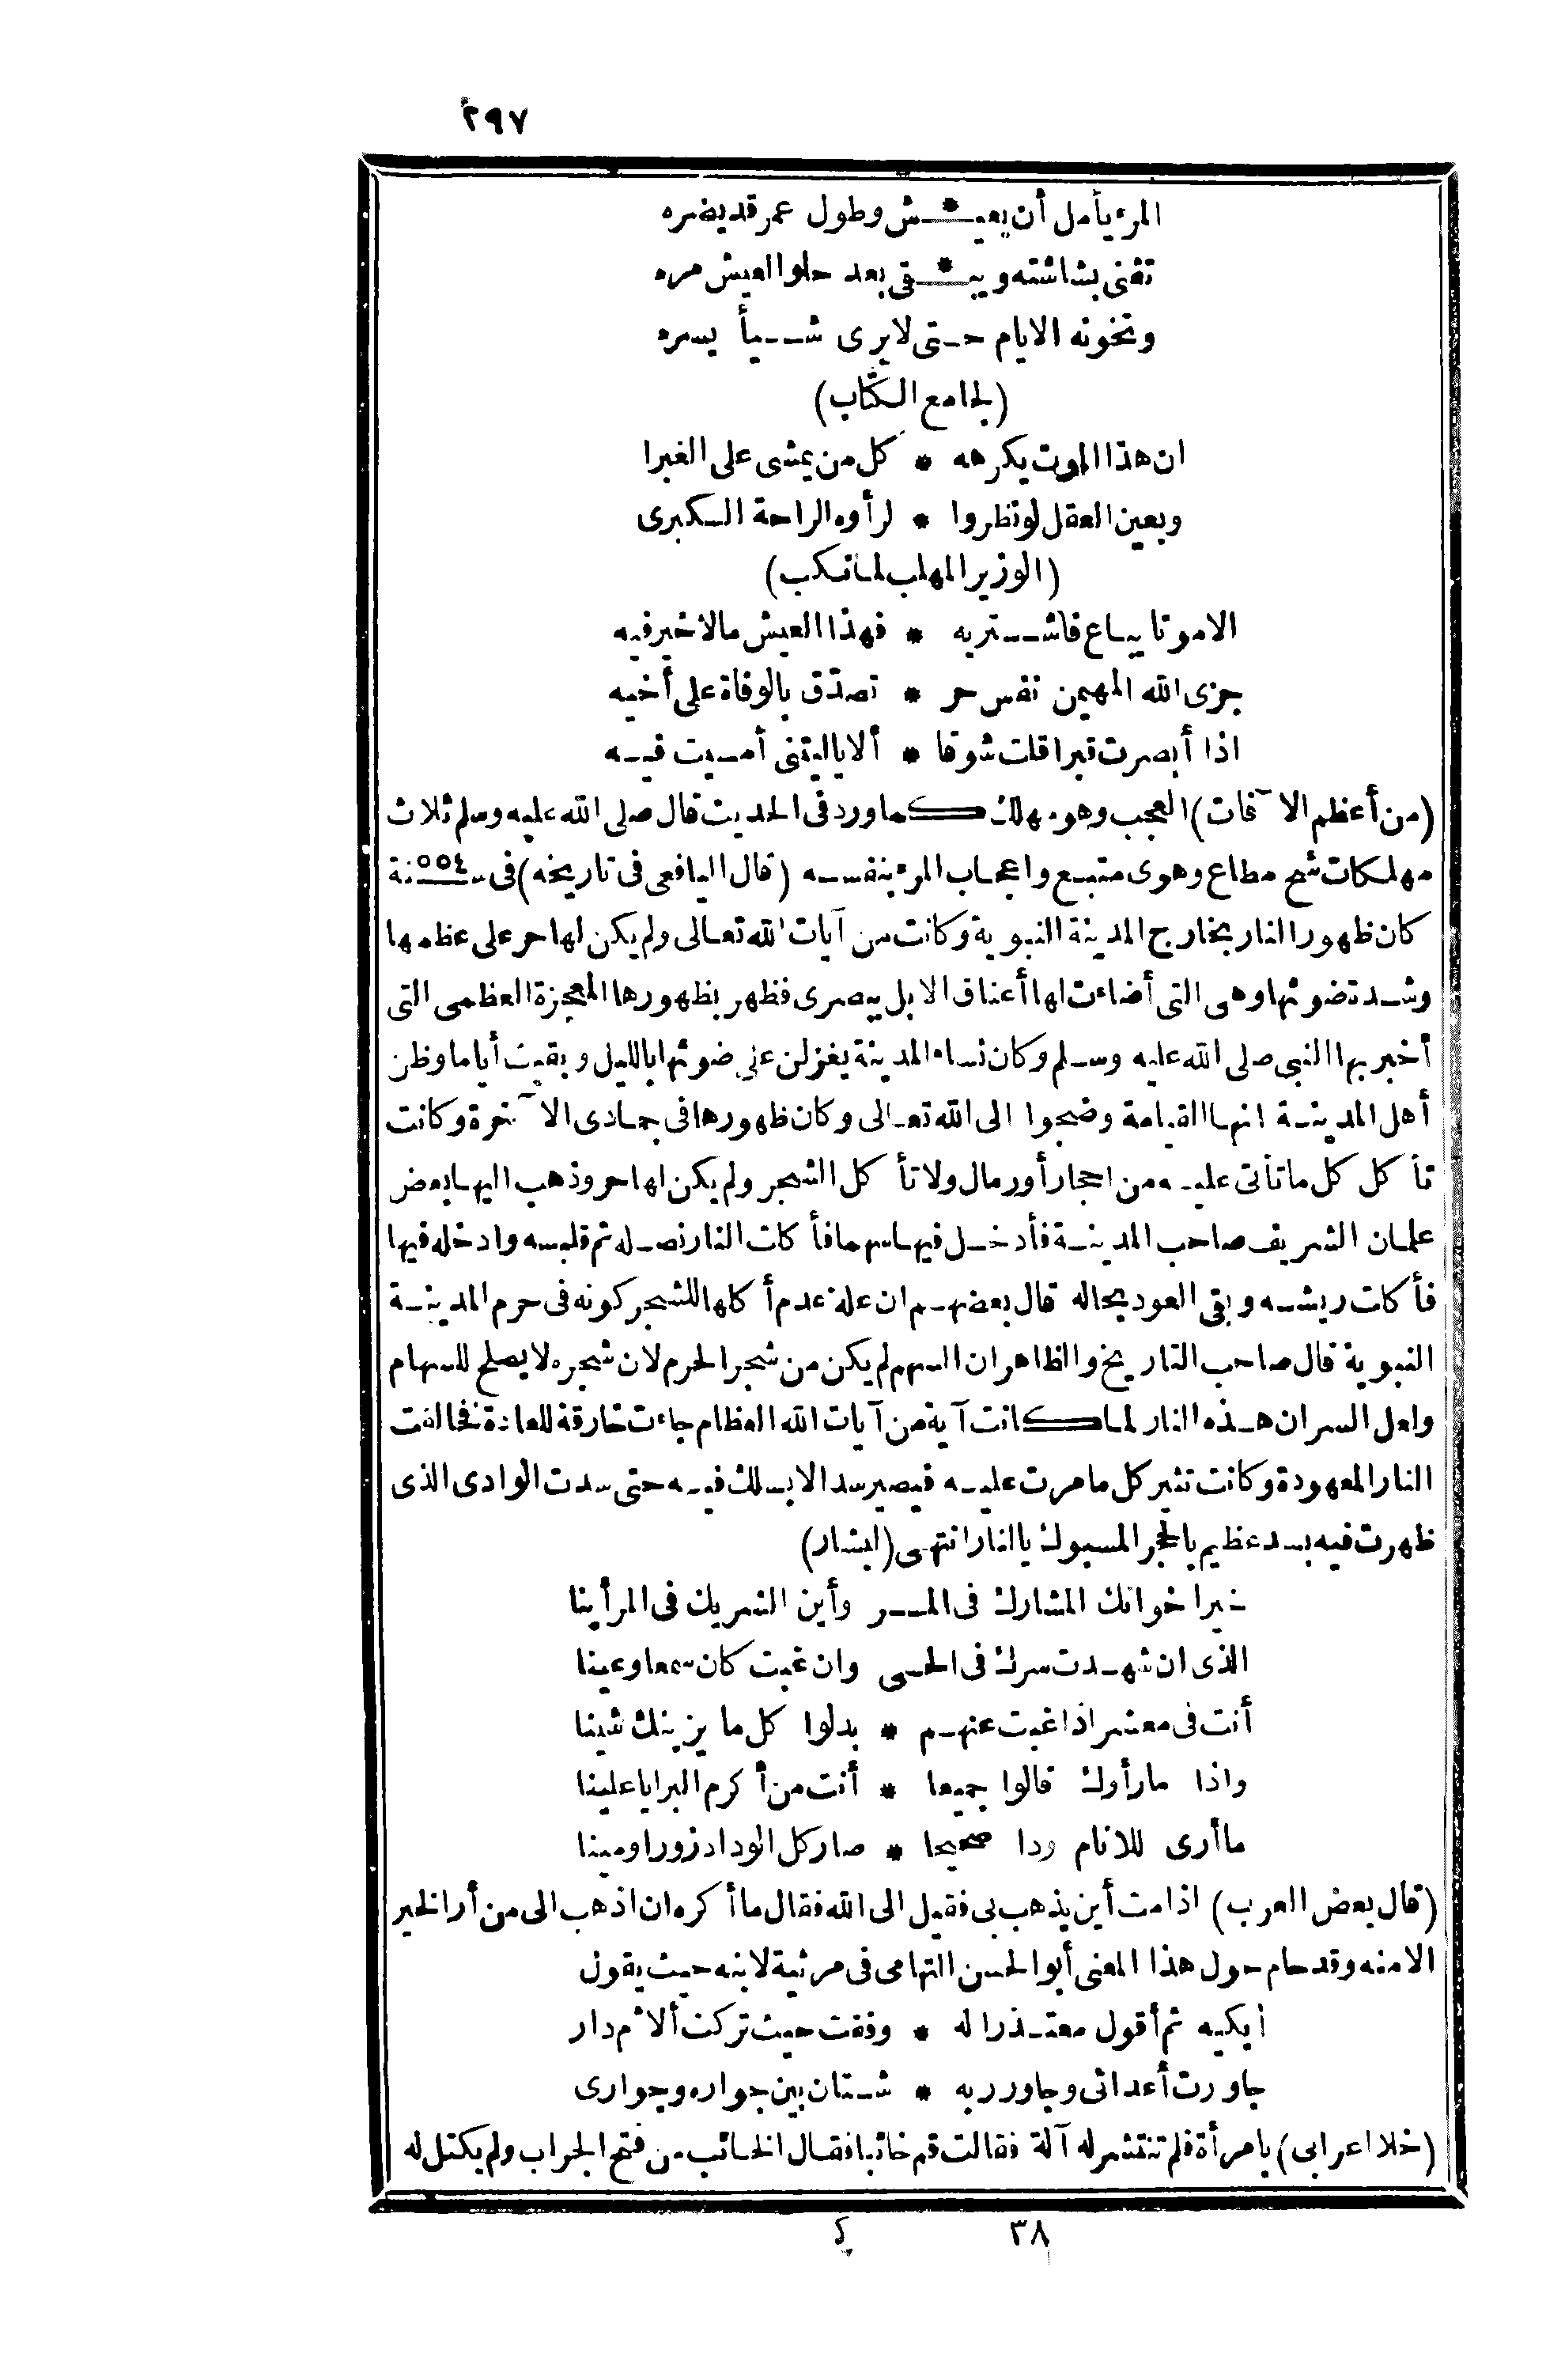 ٢٩٧
المرء يأمل أن يعيـ * ـش وطول عمر قد يضره
تفنى بشاشته ويبـ * ـقى بعد حلو العيش مره
وتخونه الايام حتى لا يرى شيأ يسره
(لجامع الكتاب)
ان هذا الموت يكرهه * كل من يمشى على الغبرا
وبعين العقل لو نظروا * لرأوه الراحة الكبرى
(الوزير المهلب لما نكب)
الا موتا يباع فاشتريه * فهذا العيش مالا خير فيه
جزى الله المهيمن نفس حر * تصدّق بالوفاة على أخيه
اذا أبصرت قبرا قلت شوقا * ألا ياليتنى أمسيت فيه
(من أعظم الآفات) العجب وهو مهلك كما ورد فى الحديث قال صلى الله عليه وسلم ثلاث
مهلكات شح مطاع وهوى متبع واعجاب المرء بنفسه (قال اليافعى فى تاريخه) فى سنة ٥٥٤
كان ظهور النار بخارج المدينة النبوية وكانت من آيات الله تعالى ولم يكن لها حر على عظمها
وشدة ضوئها وهى التى أضاءت لها أعناق الابل ببصرى فظهر بظهورها المعجزة العظمى التى
أخبر بها النبى صلى الله عليه وسلم وكان نساء المدينة يغزلن على ضوئها بالليل وبقيت أياما وظن
أهل المدينة انها القيامة وضجوا الى الله تعالى وكان ظهورها فى جمادى الآخرة وكانت
تأكل كل ما تأتى عليه من احجار أو رمال ولا تأكل الشجر ولم يكن لها حر وذهب اليها بعض
غلمان الشريف صاحب المدينة فأدخل فيها سهما فأكلت النار نصله ثم قلبه وادخله فيها
فأكلت ريشه وبقى العود بحاله قال بعضهم ان علة عدم أكلها للشجر كونه فى حرم المدينة
النبوية قال صاحب التاريخ والظاهر ان السهم لم يكن من شجر الحرم لان شجره لا يصلح للسهام
ولعل السر ان هذه النار لما كانت آية من آيات الله العظام جاءت خارقة للعادة فخالفت
النار المعهودة وكانت تثير كل ما مرت عليه فيصير سدا لا يسلك فيه حتى سدت الوادى الذى
ظهرت فيه بسد عظيم بالحجر المسبوك بالنار انتهى (لبشار)
خير اخوانك المشارك فى المــر وأين الشريك فى المر أينا
الذى ان شهدت سرك فى الحى وان غبت كان سمعا وعينا
أنت فى معشر اذا غبت عنهم * بدلوا كل ما يزينك شينا
واذا ما رأوك قالوا جميعا * أنت من أكرم البرايا علينا
ما أرى للانام ودا صحيحا * صار كل الوداد زورا ومينا
(قال بعض العرب) اذا مت أين يذهب بى فقيل الى الله فقال ما أكره ان اذهب الى من لم أر الخير
الا منه وقد حام حول هذا المعنى أبو الحسن التهامى فى مرثية لابنه حيث يقول
أبكيه ثم أقول معتذرا له * وفقت حيث تركت ألأم دار
جاورت أعدائى وجاور ربه * شتان بين جواره وجوارى
(خلا اعرابى) بامرأة فلم تنتشر له آلة فقالت قم خائبا فقال الخائب من فتح الجراب ولم يكتل له
٣٨ ك